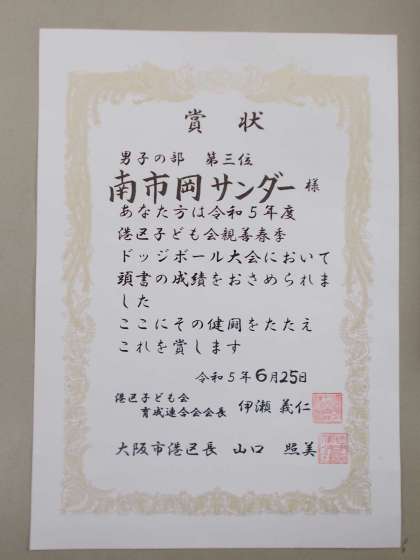 賞状
男子の部 第三位
南市岡サンダー 様
あなた方は令和5年度
港区子ども会親善春季
ドッジボール大会において
頭書の成績をおさめられま
した
ここにその健闘をたたえ
これを賞します
令和5年6月25日
港区子ども会
育成連合会会長 伊瀬 義仁
大阪市港区長 山口 照美